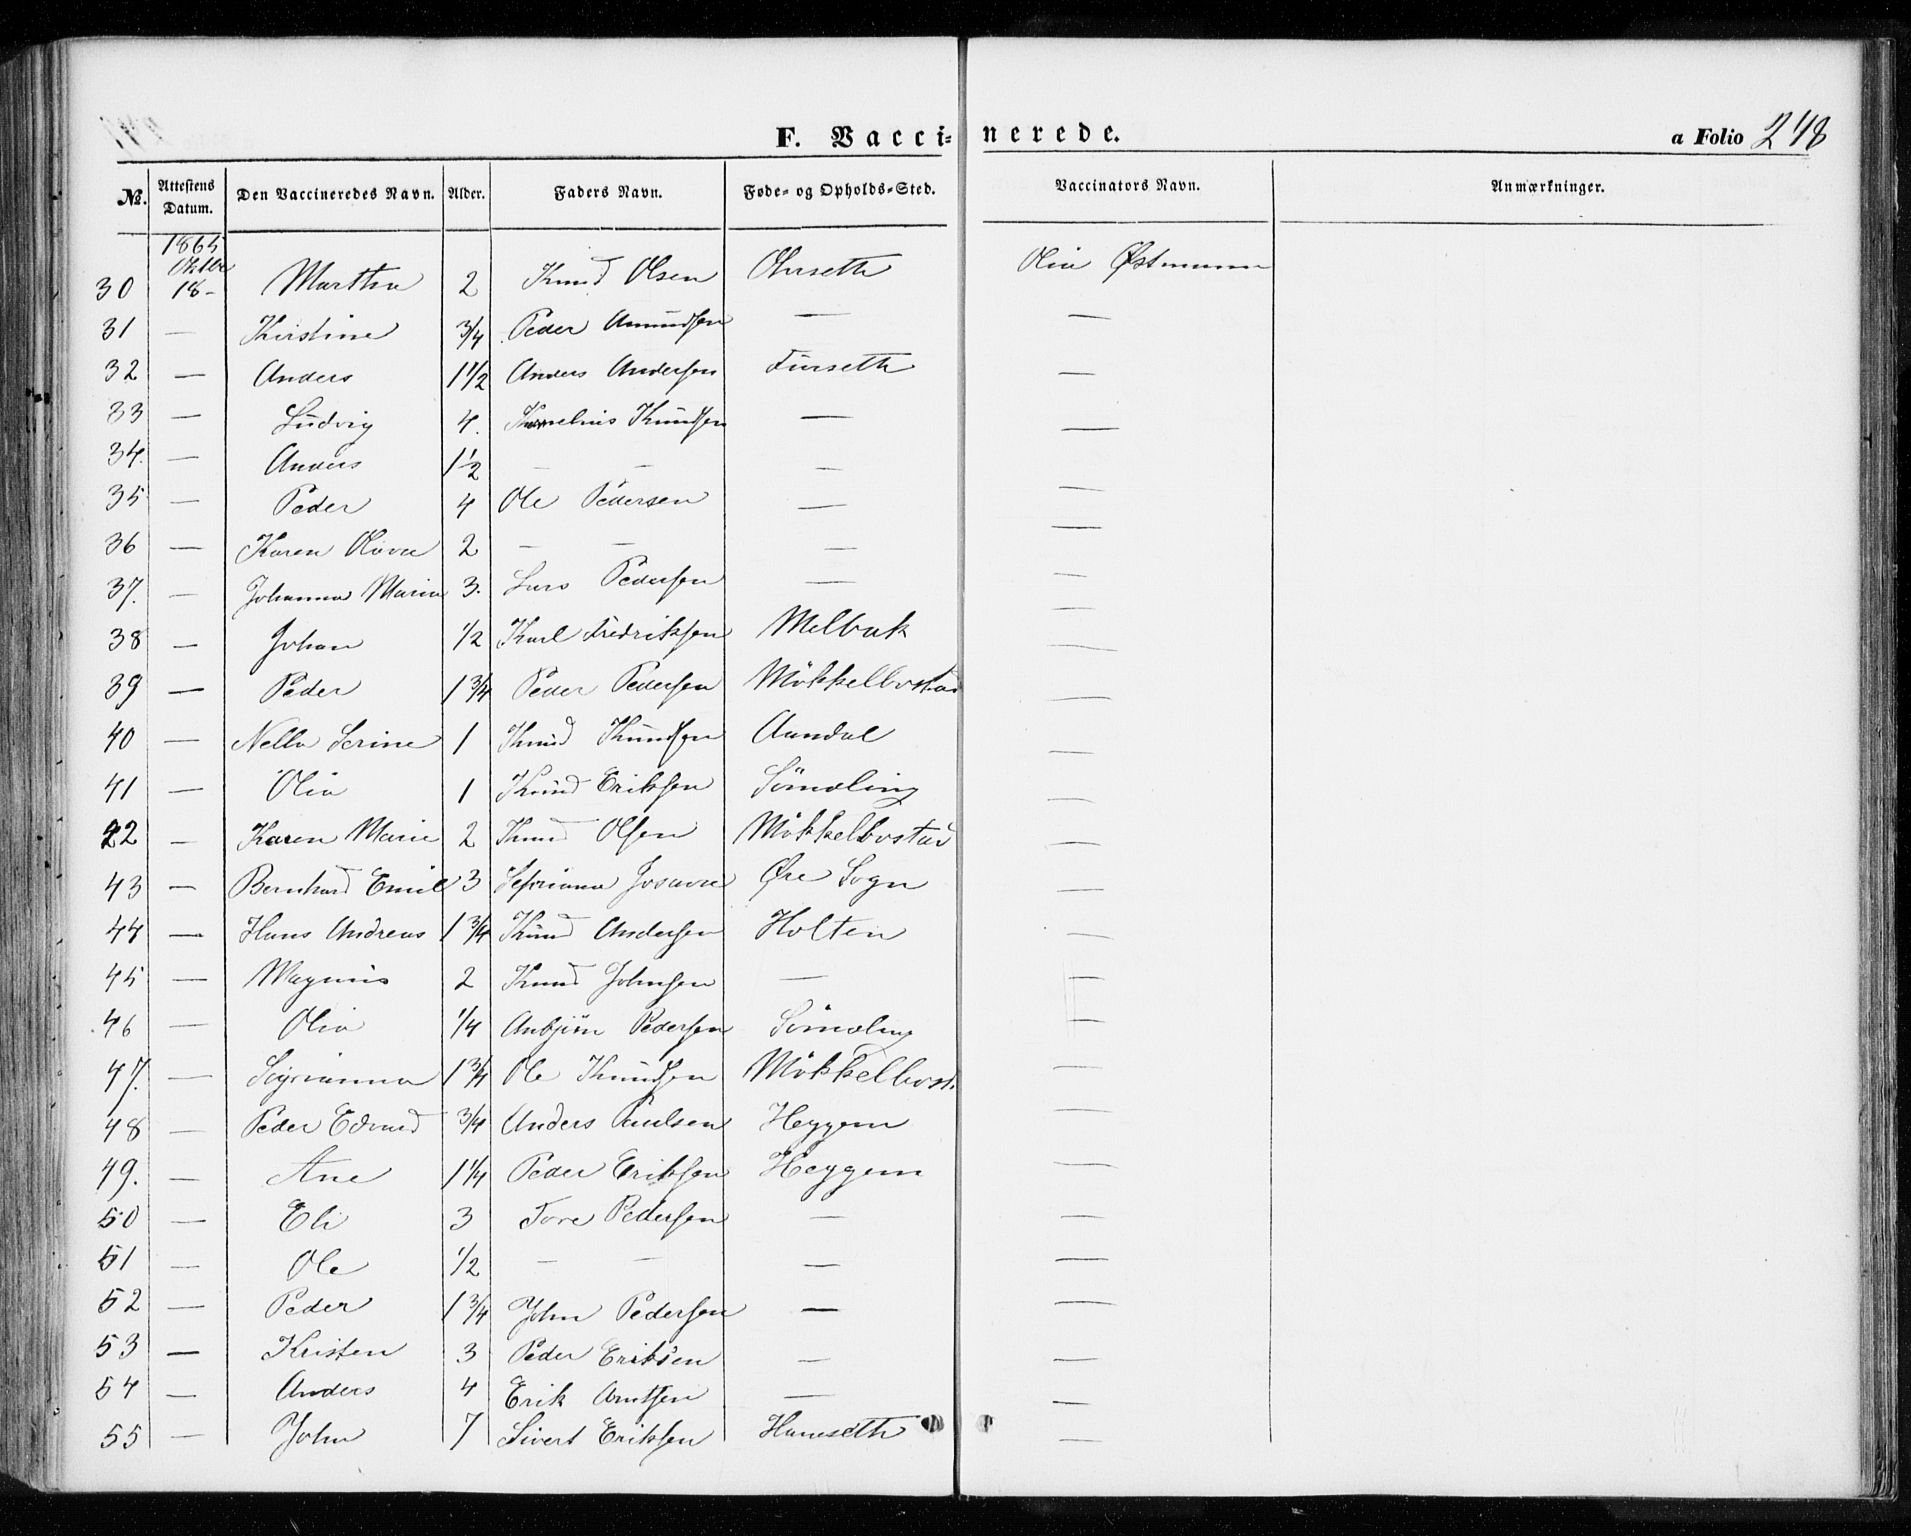 F. Vaccinerede. a Folio 248
№. Attestens Datum. Den Vaccineredes Navn. Alder. Faders Navn. Føde- og Opholds-Sted. Vaccinators Navn. Anmærkninger.
1865 Oktbr
30 18- Martha 2 Knud Olsen Ohrseth Olia Østmann
31 — Kirstine 3/4 Peder Amundsen — —
32 — Anders 1 1/2 Anders Andersen Furseth —
33 — Ludvig 4. Kornelius Knudsen — —
34. — Anders 1 1/2 — — — —
35 — Peder 4 Ole Pedersen — —
36 — Karen Olava 2 — — — —
37. — Johanna Maria 3. Lars Pedersen — —
38 — Johan 1/2 Karl Fredriksen Melbak —
39 — Peder 1 3/4 Peder Pedersen Mökkelbostad —
40 — Nella Serine 1 Knud Knudsen Aandal —
41 — Olia 1 Knud Eriksen Sömoling —
42 — Karen Marie 2 Knud Olsen Mökkelbostad —
43 — Bernhard Emil 3 Øre Sogn —
44 — Hans Andreas 1 3/4 Knud Andersen Holten —
45 — Magnus 2 Knud Johnsen — —
46 — Olia 1/4 Anbjörn Pedersen Sömoling —
47. — 1 3/4 Ole Knudsen Mökkelbost. —
48 — Peder Edvard 3/4 Anders Paulsen Heggem —
49. — Ane 1 1/4 Peder Eriksen Heggem —
50 — Eli 3 Tore Pedersen — —
51 — Ole 1/2 — — — —
52 — Peder 1 3/4 John Pedersen — —
53 — Kristen 3 Peder Eriksen — —
54 — Anders 4 Erik Arntsen — —
55 — John 7 Sivert Eriksen Hanseth —